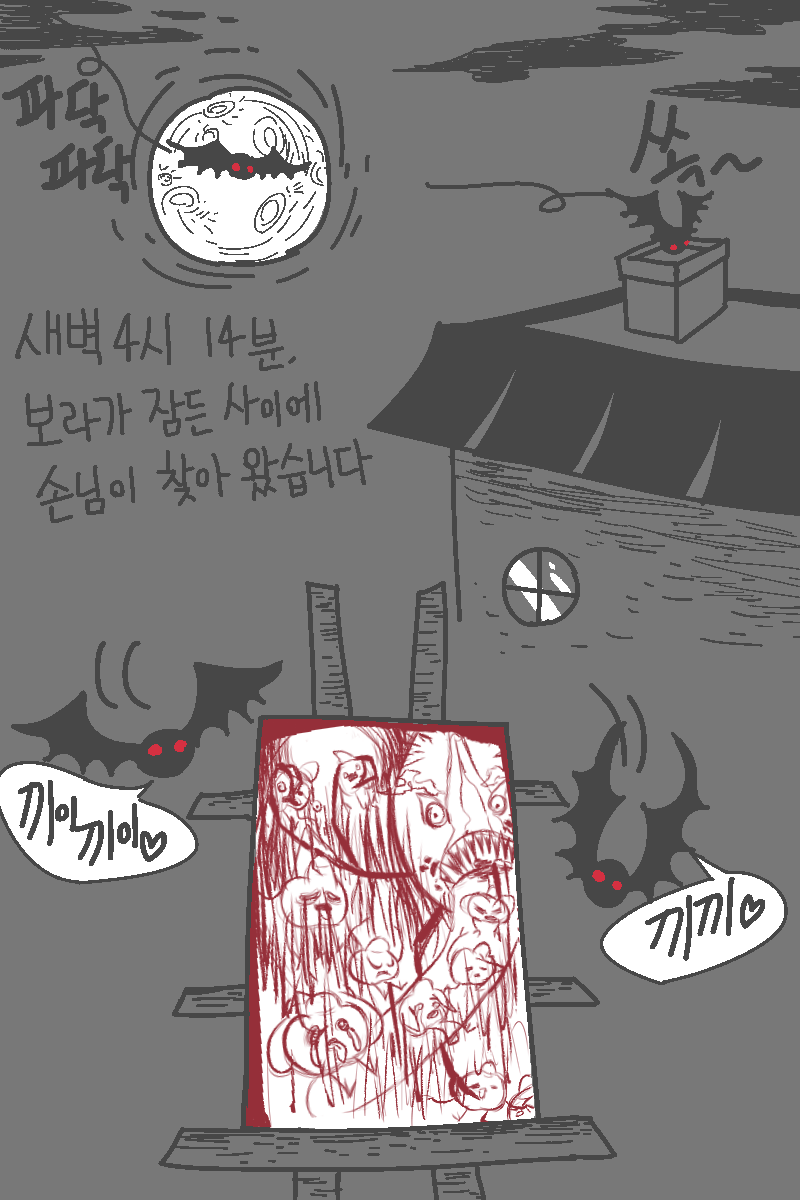 파닥
파닥
쏘옥~
새벽 4시 14분,
보라가 잠든 사이에
손님이 찾아 왔습니다
끼이끼이♡
끼끼♡